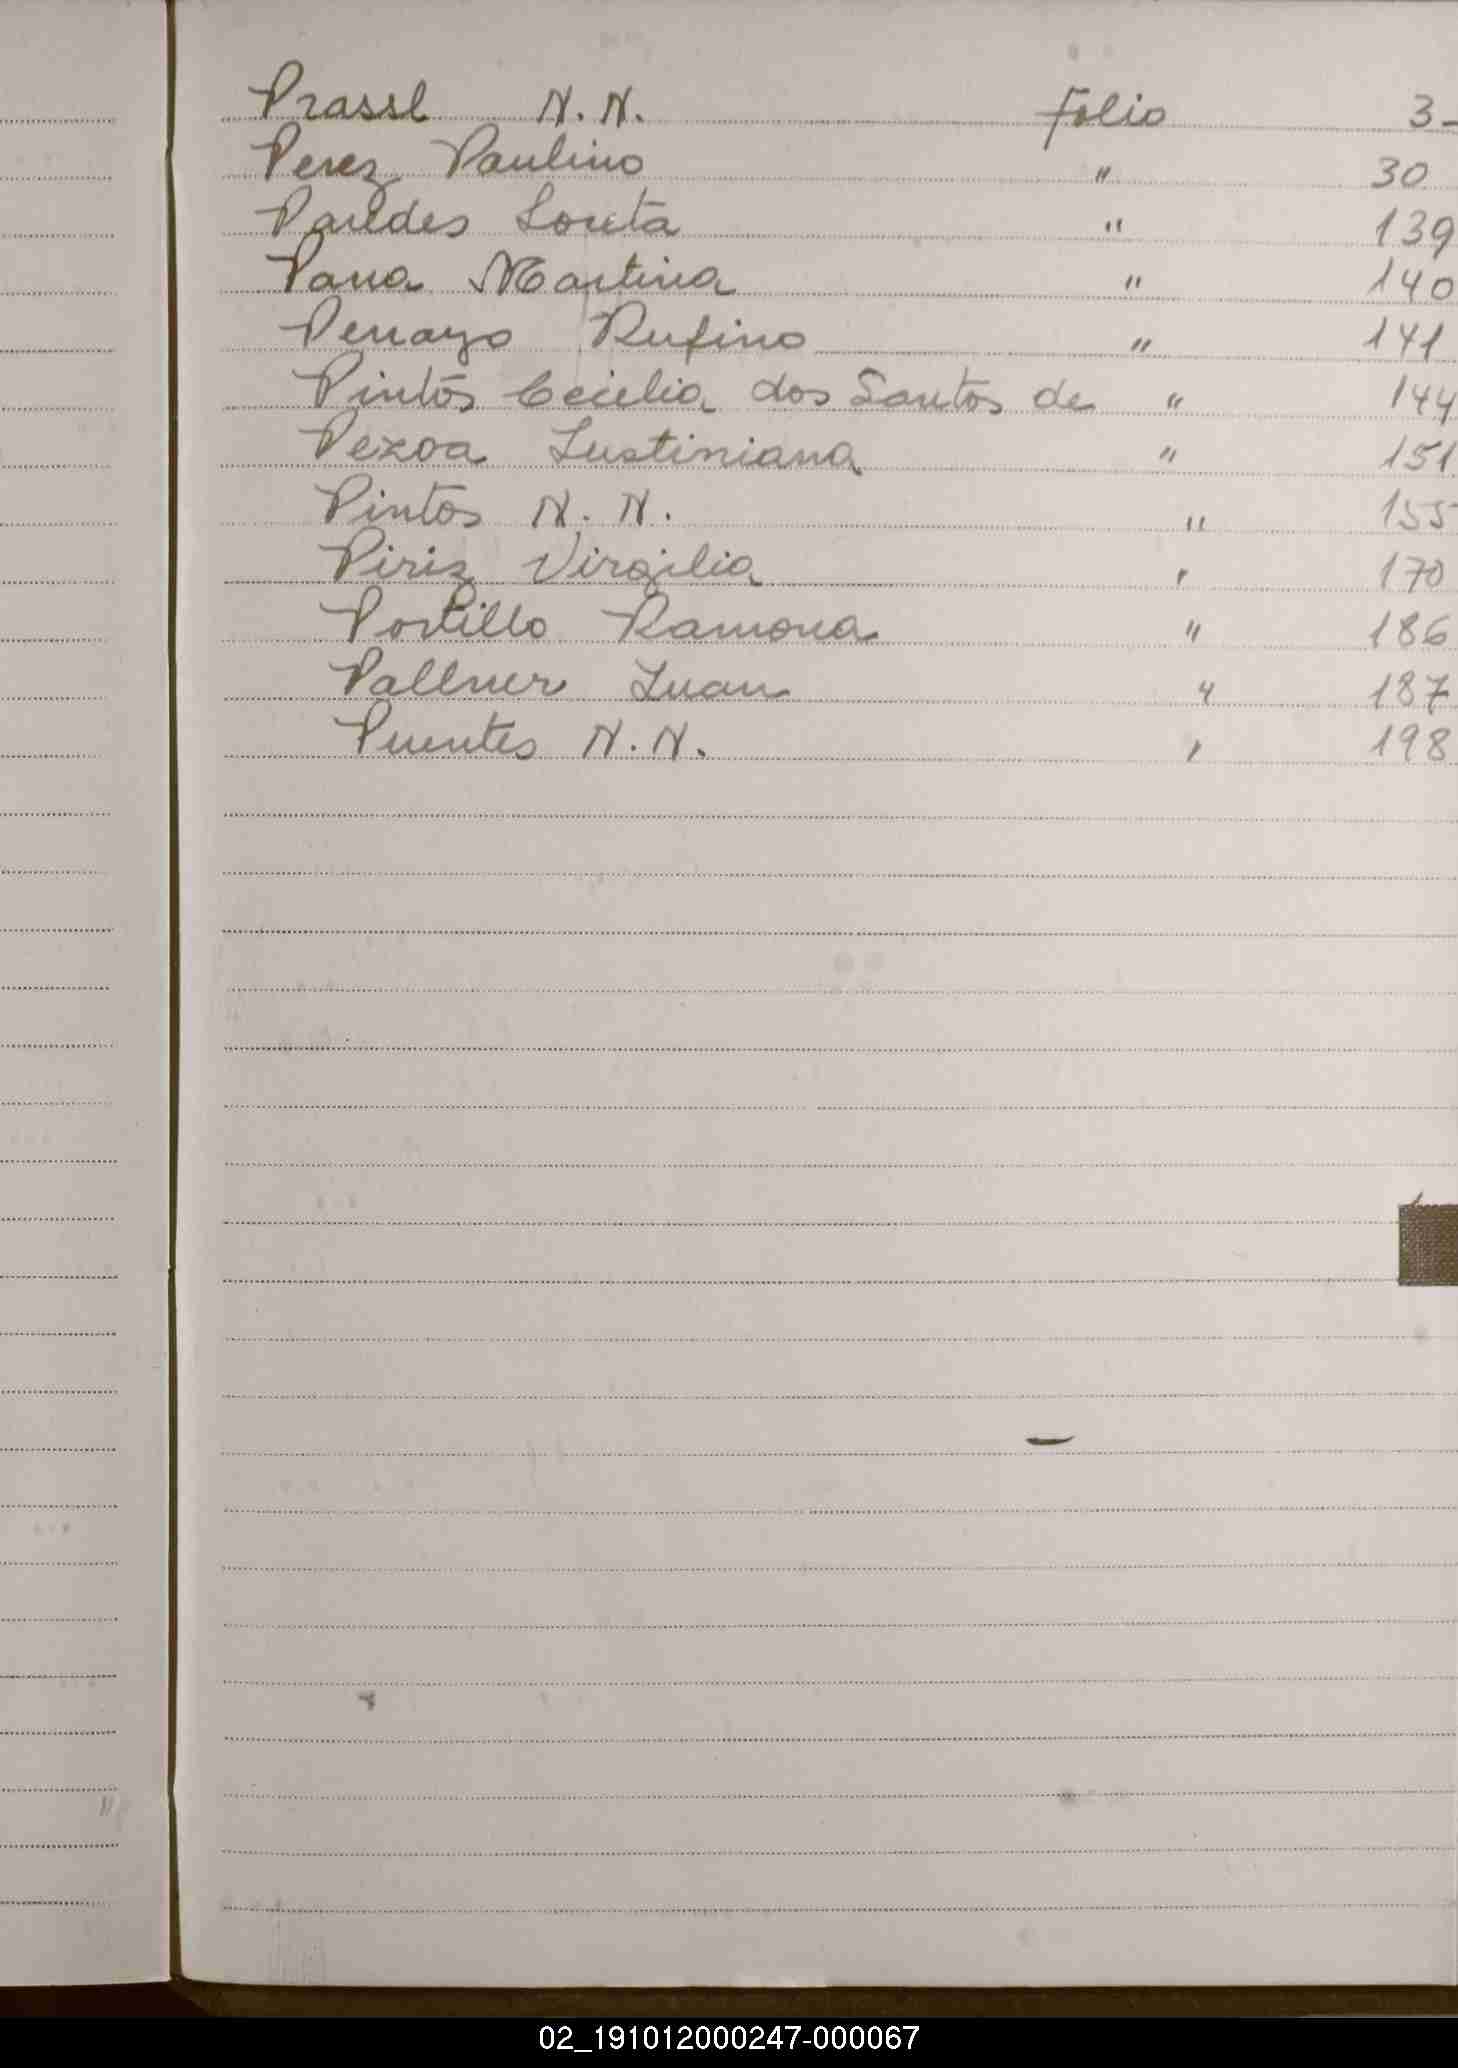 Prassl N. N. Folio 3-
Perez Paulino " 30
Paredes Loreta " 139
Pana Martina " 140
Penayo Rufino " 141
Pintos Cecilia dos Santos de " 144
Pezoa Justiniana " 151
Pintos N. N. " 155
Piriz Virgilia " 170
Portillo Ramona " 186
Pallner Juan " 187
Puentes N. N. " 198
02_191012000247-000067